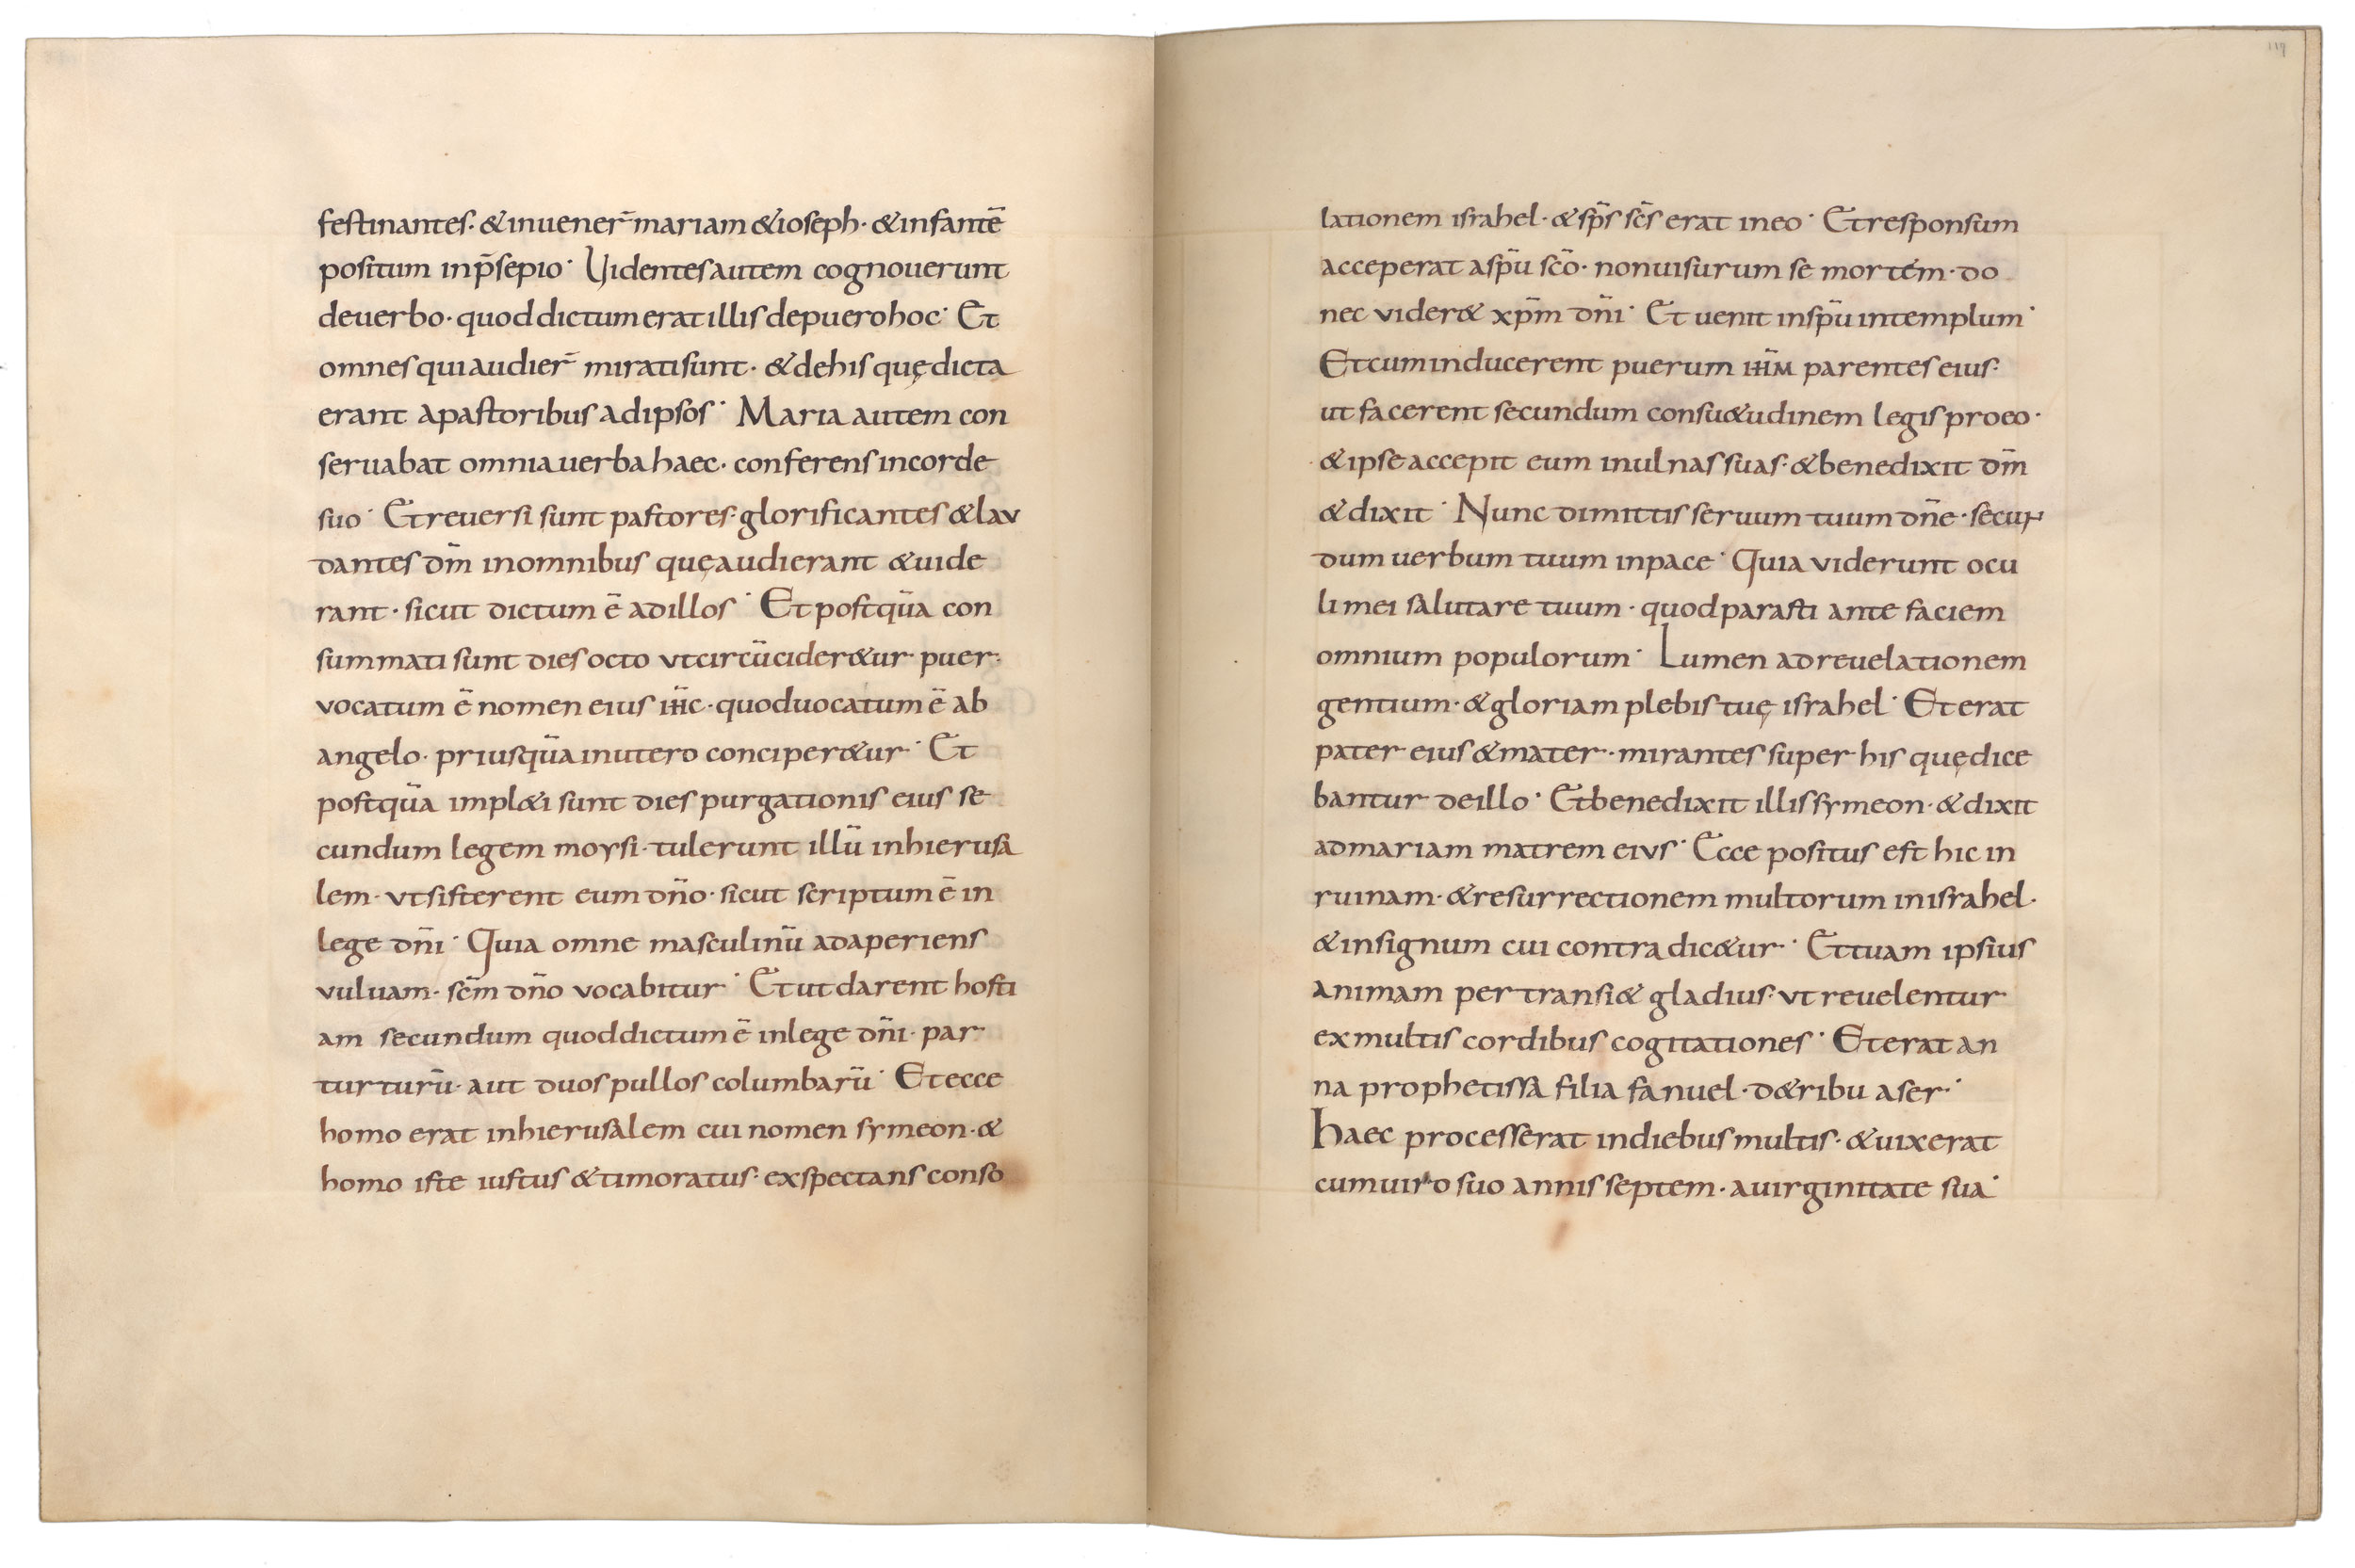 festinantes· &inuener̄ mariam &ioseph· &infantē
positum inp̄sepio· Uidentesautem cognouerunt
deuerbo· quoddictumeratillisdepuerohoc· Et
omnesquiaudier̄ miratisunt· &dehisquędicta
erant apastoribusadipsos· Maria autem con
seruabat omniauerbahaec· conferensincorde
suo· Etreuersi sunt pastores· glorificantes&lau
dantesdm̄ inomnibus quęaudierant &uide
rant· sicut dictumē adillos· Etpostqūa con
summatisunt diesocto vtcircūcider&ur puer·
vocatum ē nomeneius iħc· quoduocatumē ab
angelo· priusqūainutero conciper&ur· Et
postqūa impl&i sunt dies purgationis eius se
cundum legem moysi· tulerunt illū inhierusa
lem· vtsisterent eumdn̄o· sicut scriptumē in
lege dn̄i· Quia omne masculinū adaperiens
vuluam· scm̄ dn̄o vocabitur· Etutdarent hosti
am secundum quoddictumē inlege dn̄i· par
turturū· aut duospulloscolumbarū· Etecce
homo erat inhierusalem cui nomen symeon· &
homo iste iustus &timoratus· exspectans conso
117
lationem israhel· &sp̄s sc̄s erat ineo· Etresponsum
acceperat aspū sc̄o· nonuisurum se mortem· do
nec vider& xp̄m dn̄i· Et uenit inspū intemplum·
Etcuminducerent puerum iħm parenteseius·
ut facerent secundum consu&udinem legisproeo·
&ipseaccepit eum inulnassuas· &benedixit dm̄
&dixit· Nunc dimittisseruumtuumdn̄e· secun
dumuerbum tuum inpace· Quia viderunt ocu
li mei salutare tuum· quodparasti ante faciem
omnium populorum· Lumen adreuelationem
gentium· &gloriamplebistuę israhel· Eterat
pater eius&mater· mirantessuper his quędice
bantur deillo· Etbenedixit illissymeon· &dixit
admariam matrem eius· Ecce positus est hic in
ruinam· &resurrectionem multorum inisrahel·
&insignum cui contradic&ur· Ettuam ipsius
animam pertransi& gladius· vt reuelentur
exmultis cordibus cogitationes· Eterat an
na prophetissa filia fanuel· d&ribu aser·
haec processerat indiebusmultis· &uixerat
cumuiro suo annisseptem· auirginitate sua·